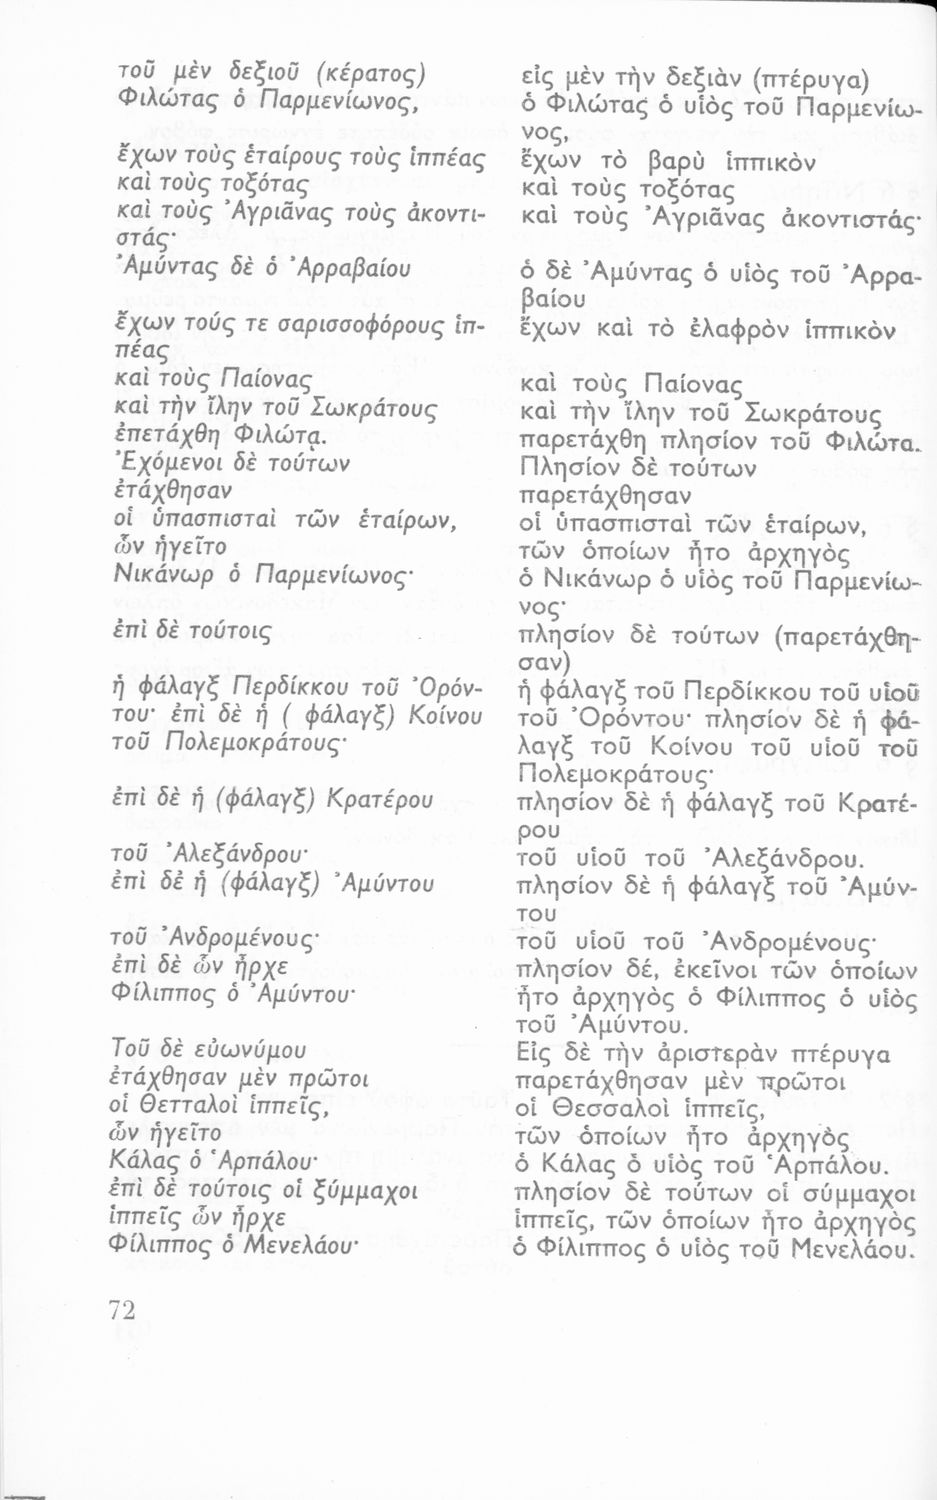 τοῦ μὲν δεξιοῦ (κέρατος)
Φιλώτας ὁ Παρμενίωνος,
ἔχων τοὺς ἑταίρους τοὺς ἱππέας
καὶ τοὺς τοξότας
καὶ τοὺς Ἀγριᾶνας τοὺς ἀκοντι-
στάς·
Ἀμύντας δὲ ὁ Ἀρραβαίου
ἔχων τούς τε σαρισσοφόρους ἱπ-
πέας
καὶ τοὺς Παίονας
καὶ τὴν ἴλην τοῦ Σωκράτους
ἐπετάχθη Φιλώτᾳ.
Ἐχόμενοι δὲ τούτων
ἐτάχθησαν
οἱ ὑπασπισταὶ τῶν ἑταίρων,
ὧν ἡγεῖτο
Νικάνωρ ὁ Παρμενίωνος·
ἐπὶ δὲ τούτοις
ἡ φάλαγξ Περδίκκου τοῦ Ὀρόν-
του· ἐπὶ δὲ ἡ ( φάλαγξ) Κοίνου
τοῦ Πολεμοκράτους·
ἐπὶ δὲ ἡ (φάλαγξ) Κρατέρου
τοῦ Ἀλεξάνδρου·
ἐπὶ δὲ ἡ (φάλαγξ) Ἀμύντου
τοῦ Ἀνδρομένους·
ἐπὶ δὲ ὧν ἦρχε
Φίλιππος ὁ Ἀμύντου·
Τοῦ δὲ εὐωνύμου
ἐτάχθησαν μὲν πρῶτοι
οἱ Θετταλοὶ ἱππεῖς,
ὧν ἡγεῖτο
Κάλας ὁ Ἁρπάλου·
ἐπὶ δὲ τούτοις οἱ ξύμμαχοι
ἱππεῖς ὧν ἦρχε
Φίλιππος ὁ Μενελάου·
εἰς μὲν τὴν δεξιὰν (πτέρυγα)
ὁ Φιλώτας ὁ υἱὸς τοῦ Παρμενίω-
νος,
ἔχων τὸ βαρὺ ἱππικὸν
καὶ τοὺς τοξότας
καὶ τοὺς Ἀγριᾶνας ἀκοντιστάς·
ὁ δὲ Ἀμύντας ὁ υἱὸς τοῦ Ἀρρα-
βαίου
ἔχων καὶ τὸ ἐλαφρὸν ἱππικὸν
καὶ τοὺς Παίονας
καὶ τὴν ἴλην τοῦ Σωκράτους
παρετάχθη πλησίον τοῦ Φιλώτα.
Πλησίον δὲ τούτων
παρετάχθησαν
οἱ ὑπασπισταὶ τῶν ἑταίρων,
τῶν ὁποίων ἦτο ἀρχηγὸς
ὁ Νικάνωρ ὁ υἱὸς τοῦ Παρμενίω-
νος·
πλησίον δὲ τούτων (παρετάχθη-
σαν)
ἡ φάλαγξ τοῦ Περδίκκου τοῦ υἱοῦ
τοῦ Ὀρόντου· πλησίον δὲ ἡ φά-
λαγξ τοῦ Κοίνου τοῦ υἱοῦ τοῦ
Πολεμοκράτους·
πλησίον δὲ ἡ φάλαγξ τοῦ Κρατέ-
ρου
τοῦ υἱοῦ τοῦ Ἀλεξάνδρου.
πλησίον δὲ ἡ φάλαγξ τοῦ Ἀμύν-
του
τοῦ υἱοῦ τοῦ Ἀνδρομένους·
πλησίον δέ, ἐκεῖνοι τῶν ὁποίων
ἦτο ἀρχηγὸς ὁ Φίλιππος ὁ υἱὸς
τοῦ Ἀμύντου.
Εἰς δὲ τὴν ἀριστερὰν πτέρυγα
παρετάχθησαν μὲν πρῶτοι
οἱ Θεσσαλοὶ ἱππεῖς,
τῶν ὁποίων ἦτο ἀρχηγὸς
ὁ Κάλας ὁ υἱὸς τοῦ Ἁρπάλου.
πλησίον δὲ τούτων οἱ σύμμαχοι
ἱππεῖς, τῶν ὁποίων ἦτο ἀρχηγὸς
ὁ Φίλιππος ὁ υἱὸς τοῦ Μενελάου.
72